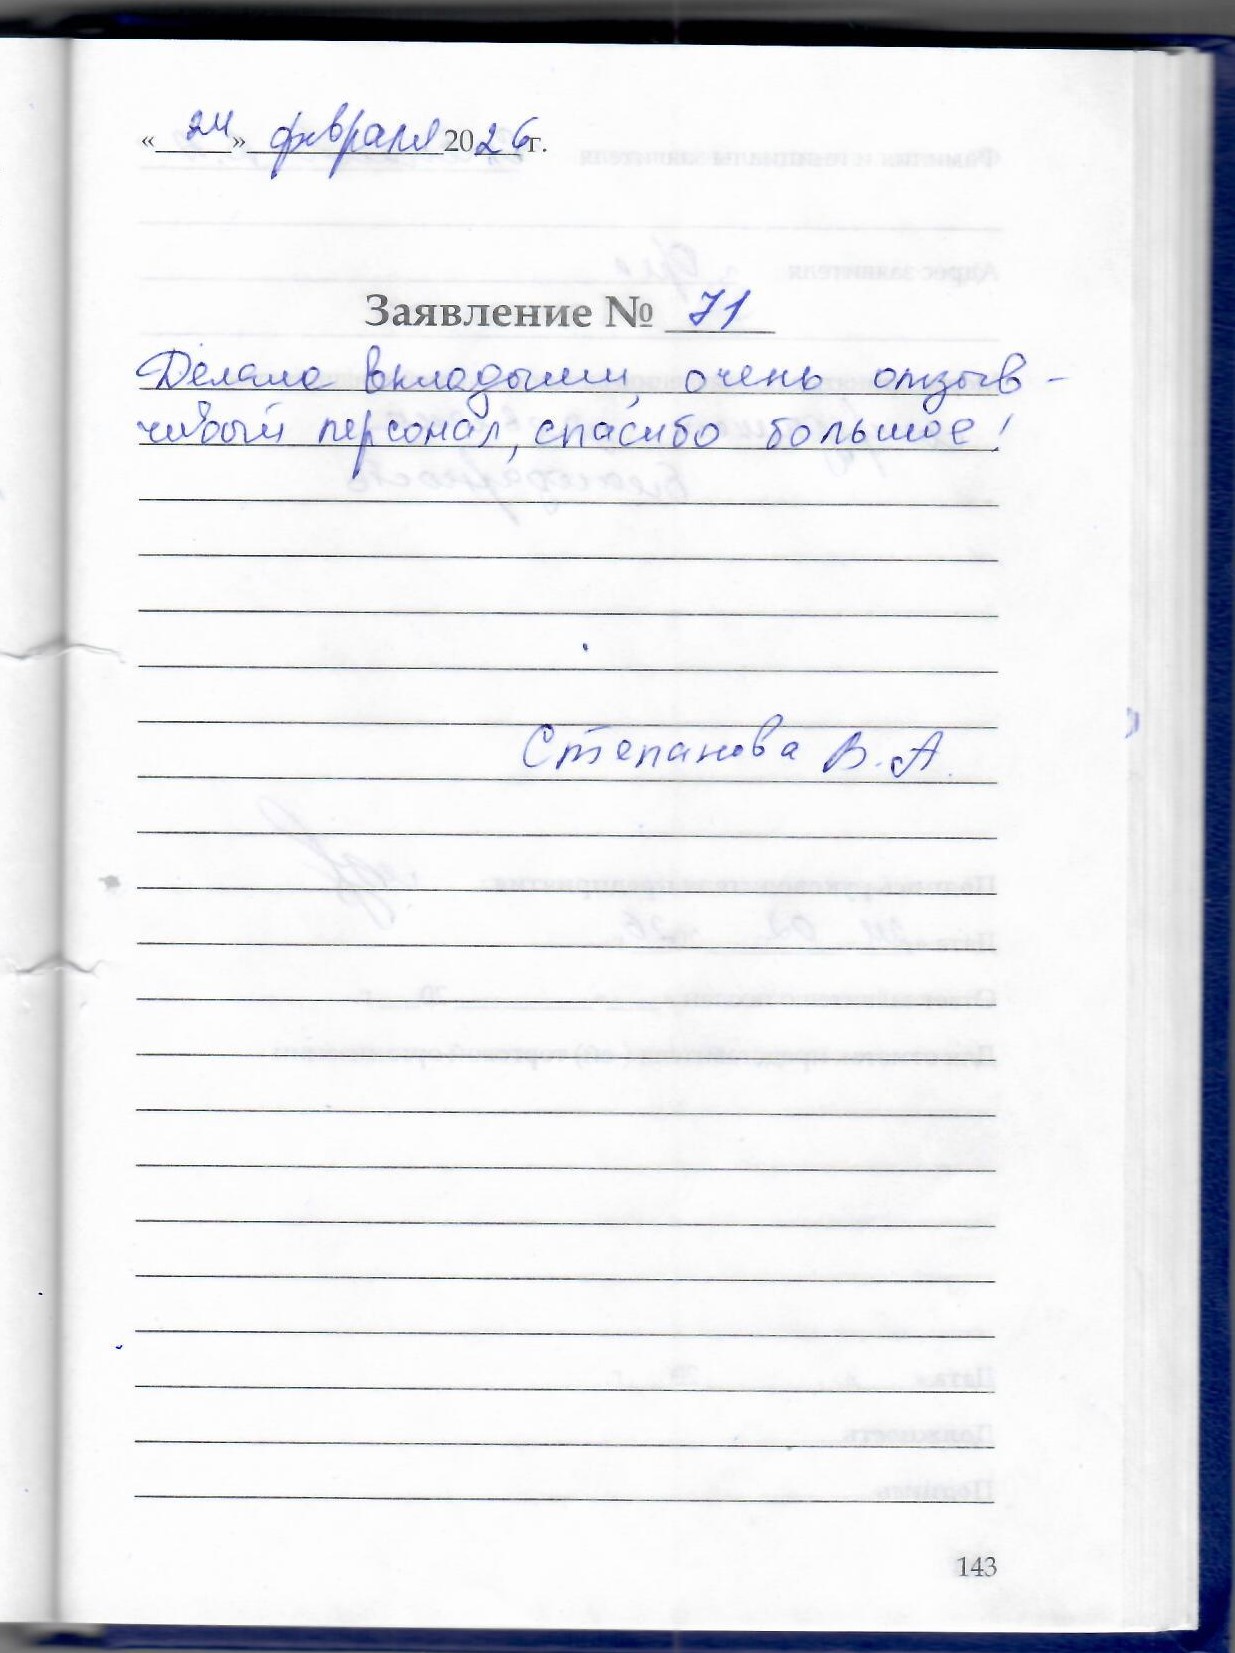 «24» февраля 2026г.
Заявление № 71
Делала вкладыши, очень отзыв-
чивый персонал, спасибо большое!
Степанова В.А.
143